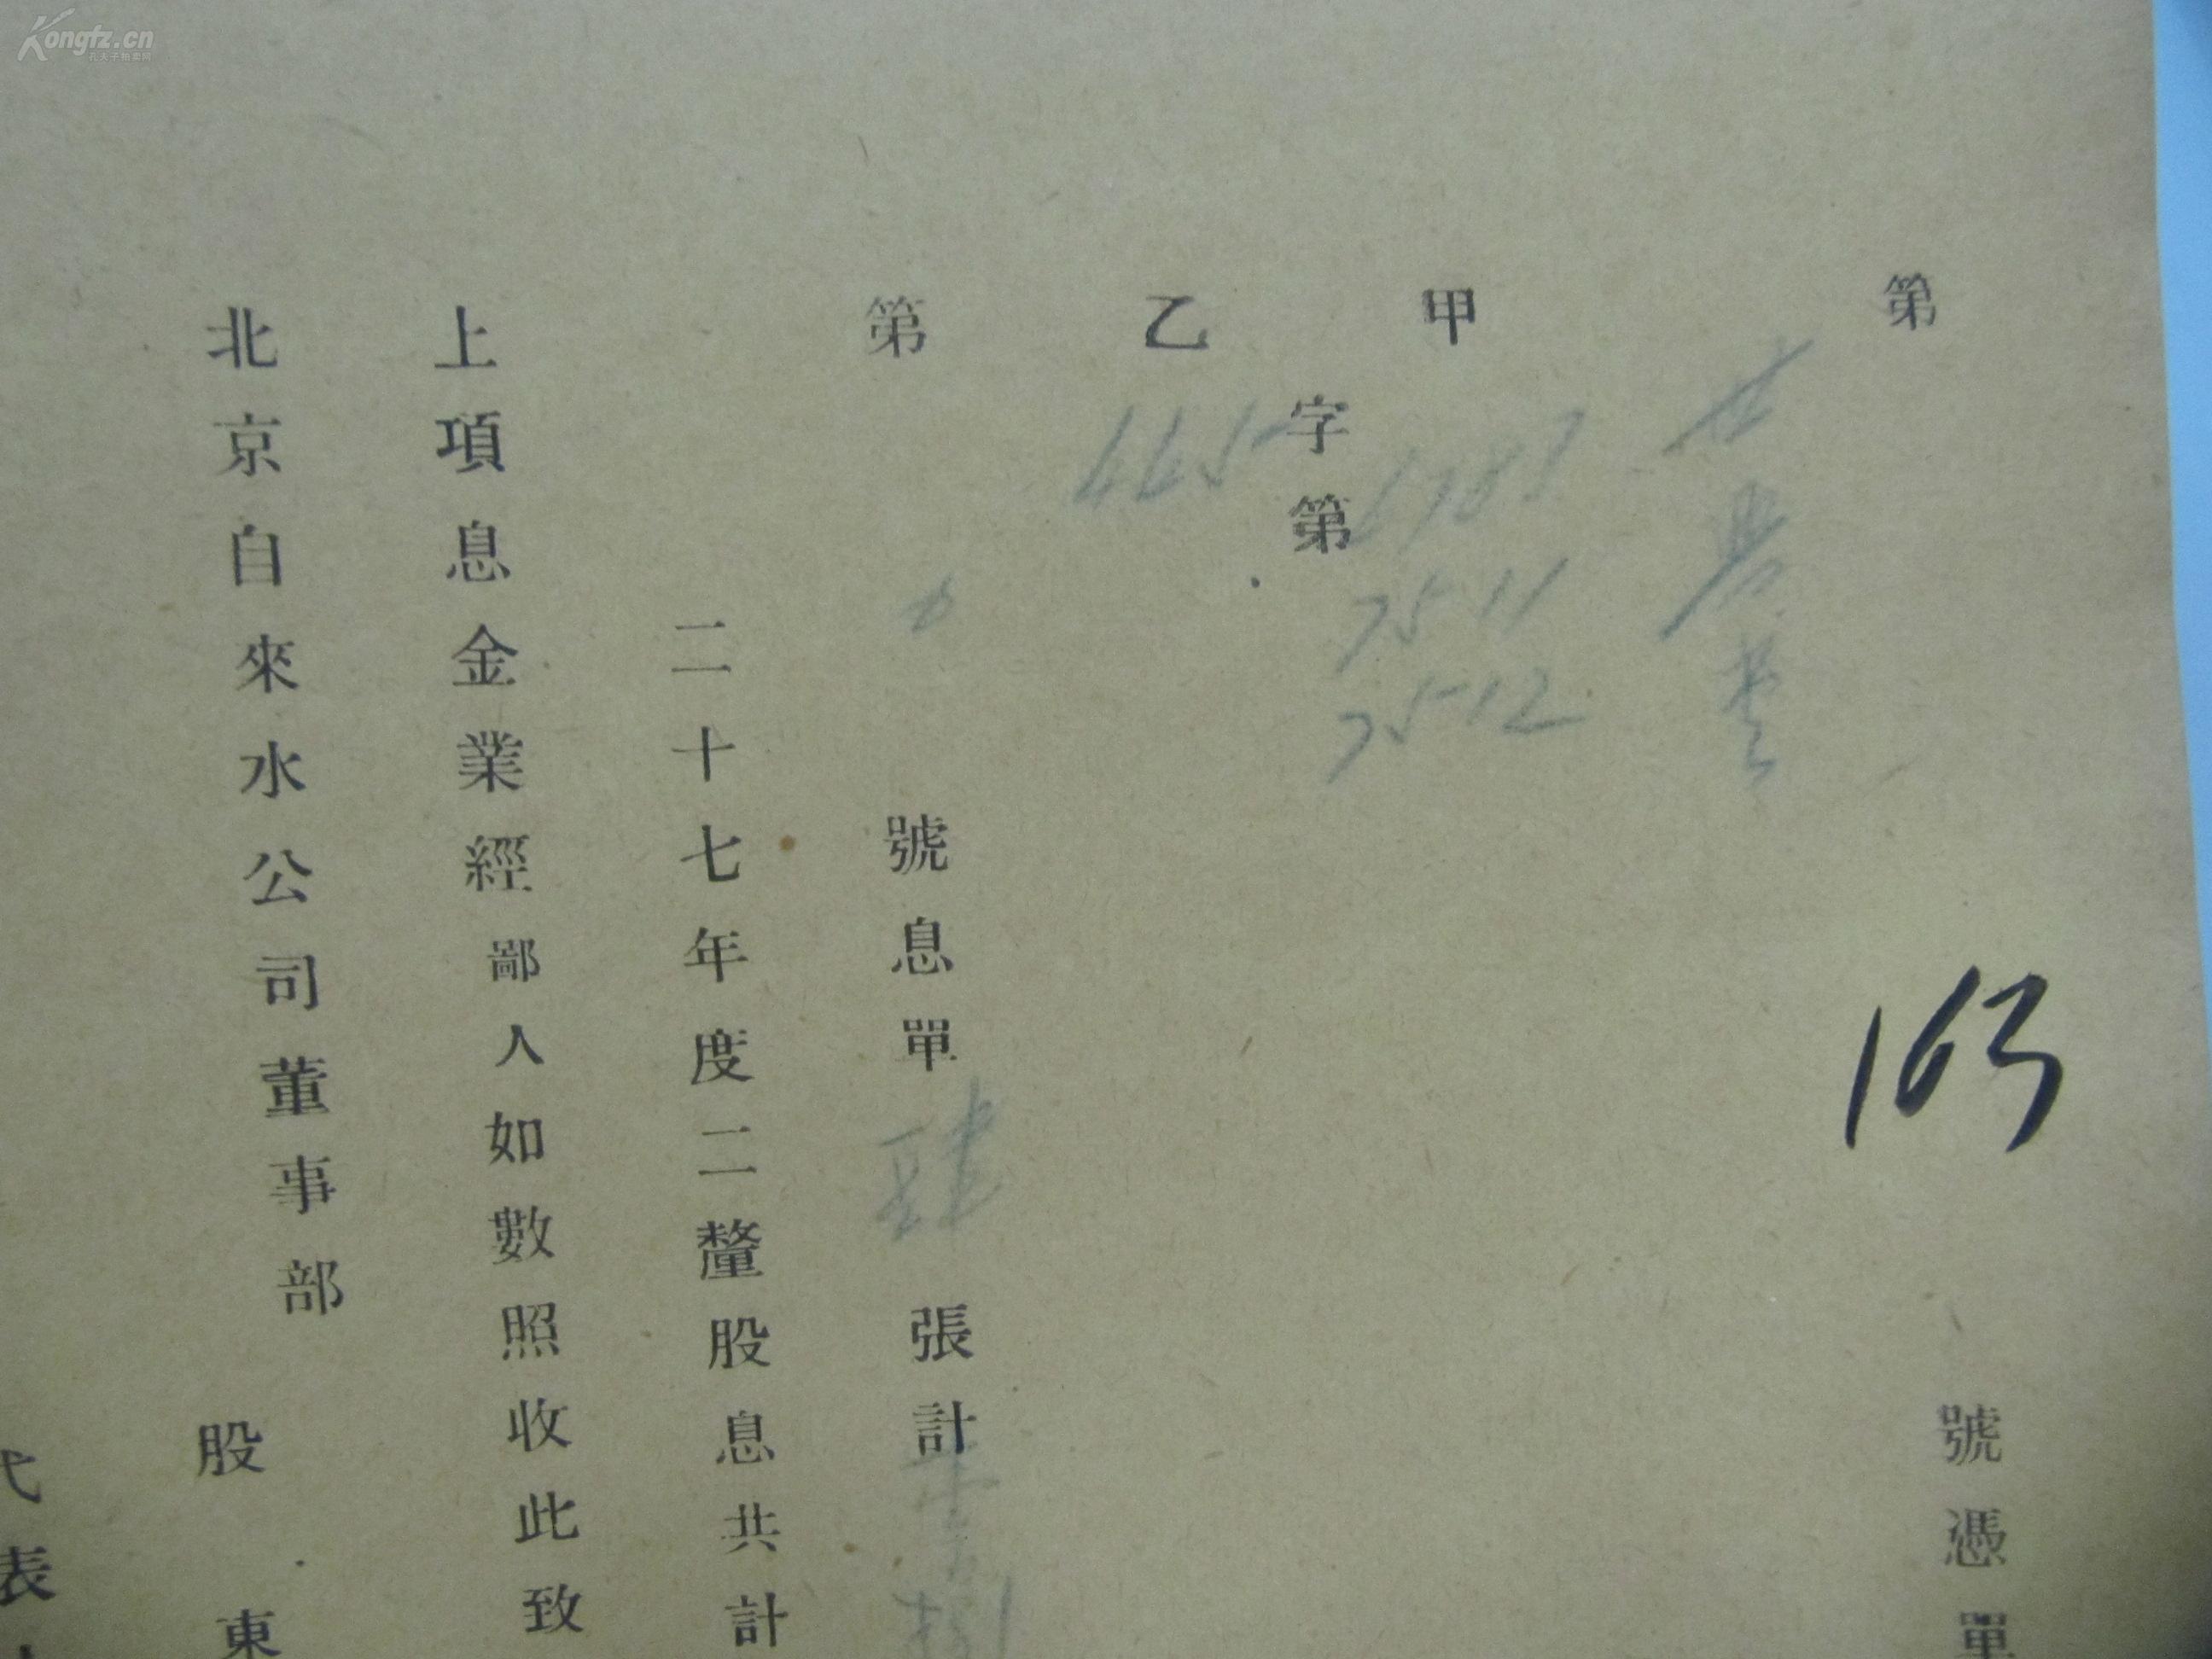 第 163 號憑單
甲 6787
7511
7512
字第
乙 445
第 號息單肆張計
二十七年度二釐股息共計
上項息金業經鄙人如數照收此致
北京自來水公司董事部
股東
代表
Kongfz.cn
孔夫子拍卖网